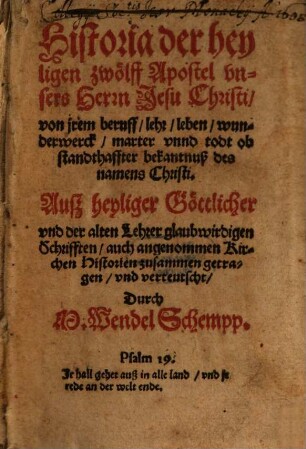 Historia der hey
ligen zwölff Apostel vn-
sers Herrn Jesu Christi/
von jrem beruff/ lehr/ leben/ wun-
derwerck/ marter vnnd todt ob
standthaffter bekantnuß des
namens Christi.
Auß heyliger Göttlicher
vnd der alten Lehrer glaubwirdigen
Schrifften/ auch angenommen Kir-
chen Historien zusammen getra-
gen/ vnd verteutscht/
Durch
M. Wendel Schempp.
Psalm 19.
Jr hall gehet auß in alle land/ vnd jr
rede an der welt ende.